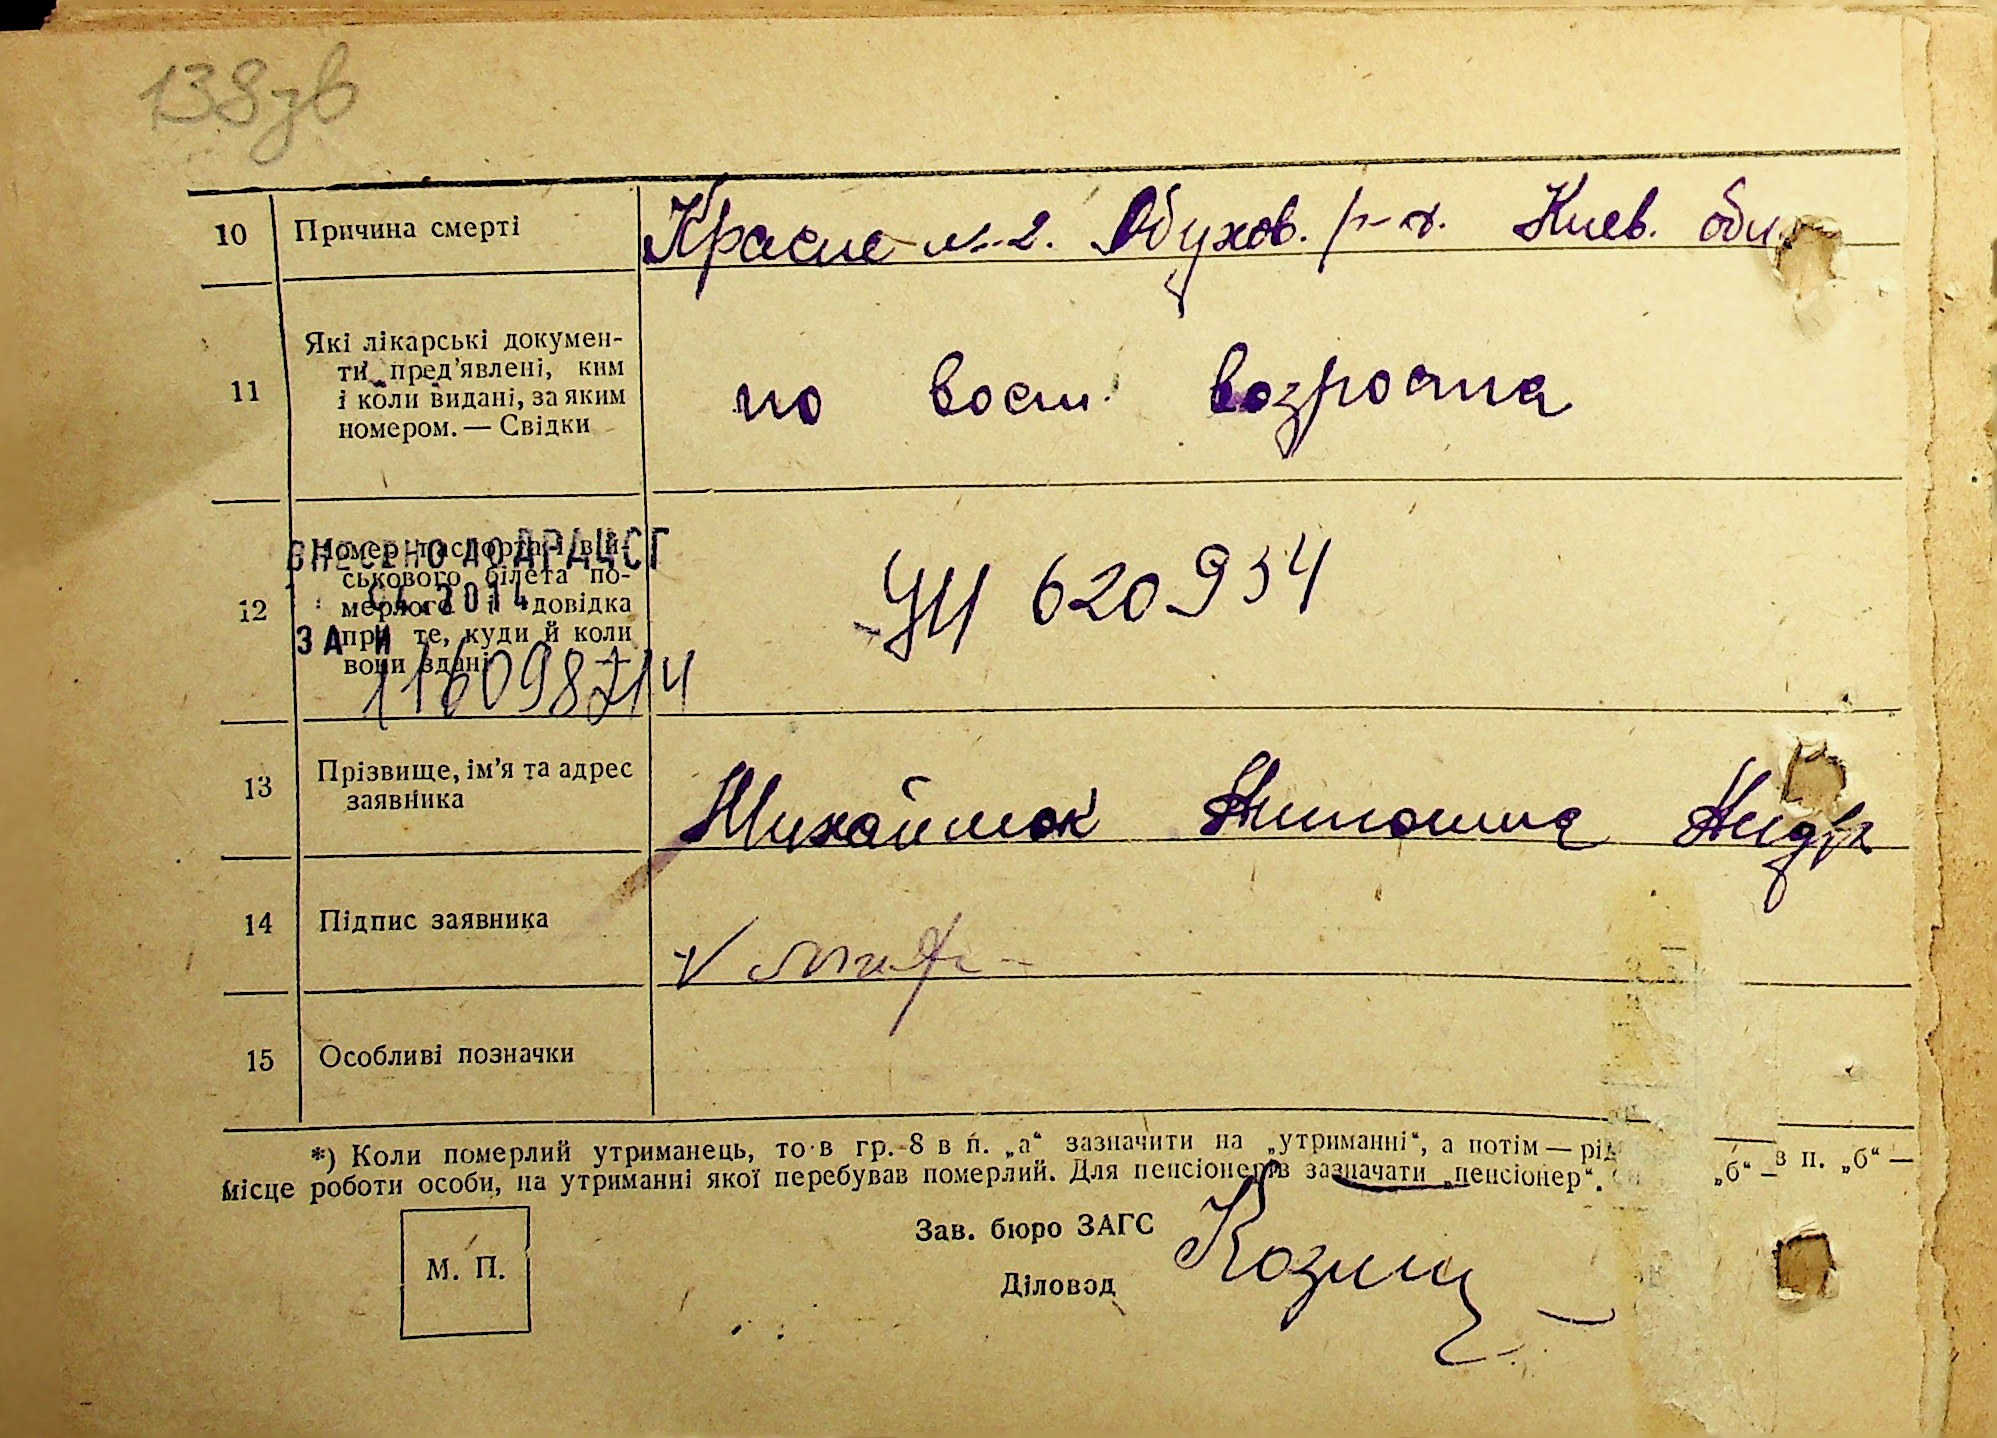 138зв
10 Причина смерті Красне № 2. Обухов. р-н. Киев. обл.
11 Які лікарські докумен-
ти пред'явлені, ким
і коли видані, за яким
номером. — Свідки
по восст. возраста
ВНЕСЕНО ДО ДРАЦСГ
12 Номер паспорта і вій-
ського білета по-
мерлого і довідка
про те, куди й коли
вони здані
2014
ЗА №
11609871 4
620934
13 Прізвище, ім'я та адрес
заявника
Михайлюк
14 Підпис заявника
15 Особливі позначки
*) Коли померлий утриманець, то в гр. 8 в п. „а“ зазначити на „утриманні“, а потім — рід
„б“ — в п. „б“ —
місце роботи особи, на утриманні якої перебував померлий. Для пенсіонерів зазначати „пенсіонер“.
М. П.
Зав. бюро ЗАГС
Діловод